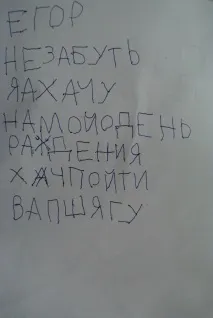 ЕГОР
НЕЗАБУТЬ
ЯАХАЧУ
НАМОЙОДЕНЬ
РАЖДЕНИЯ
ХАЧПОЙТИ
ВАПШЯГУ